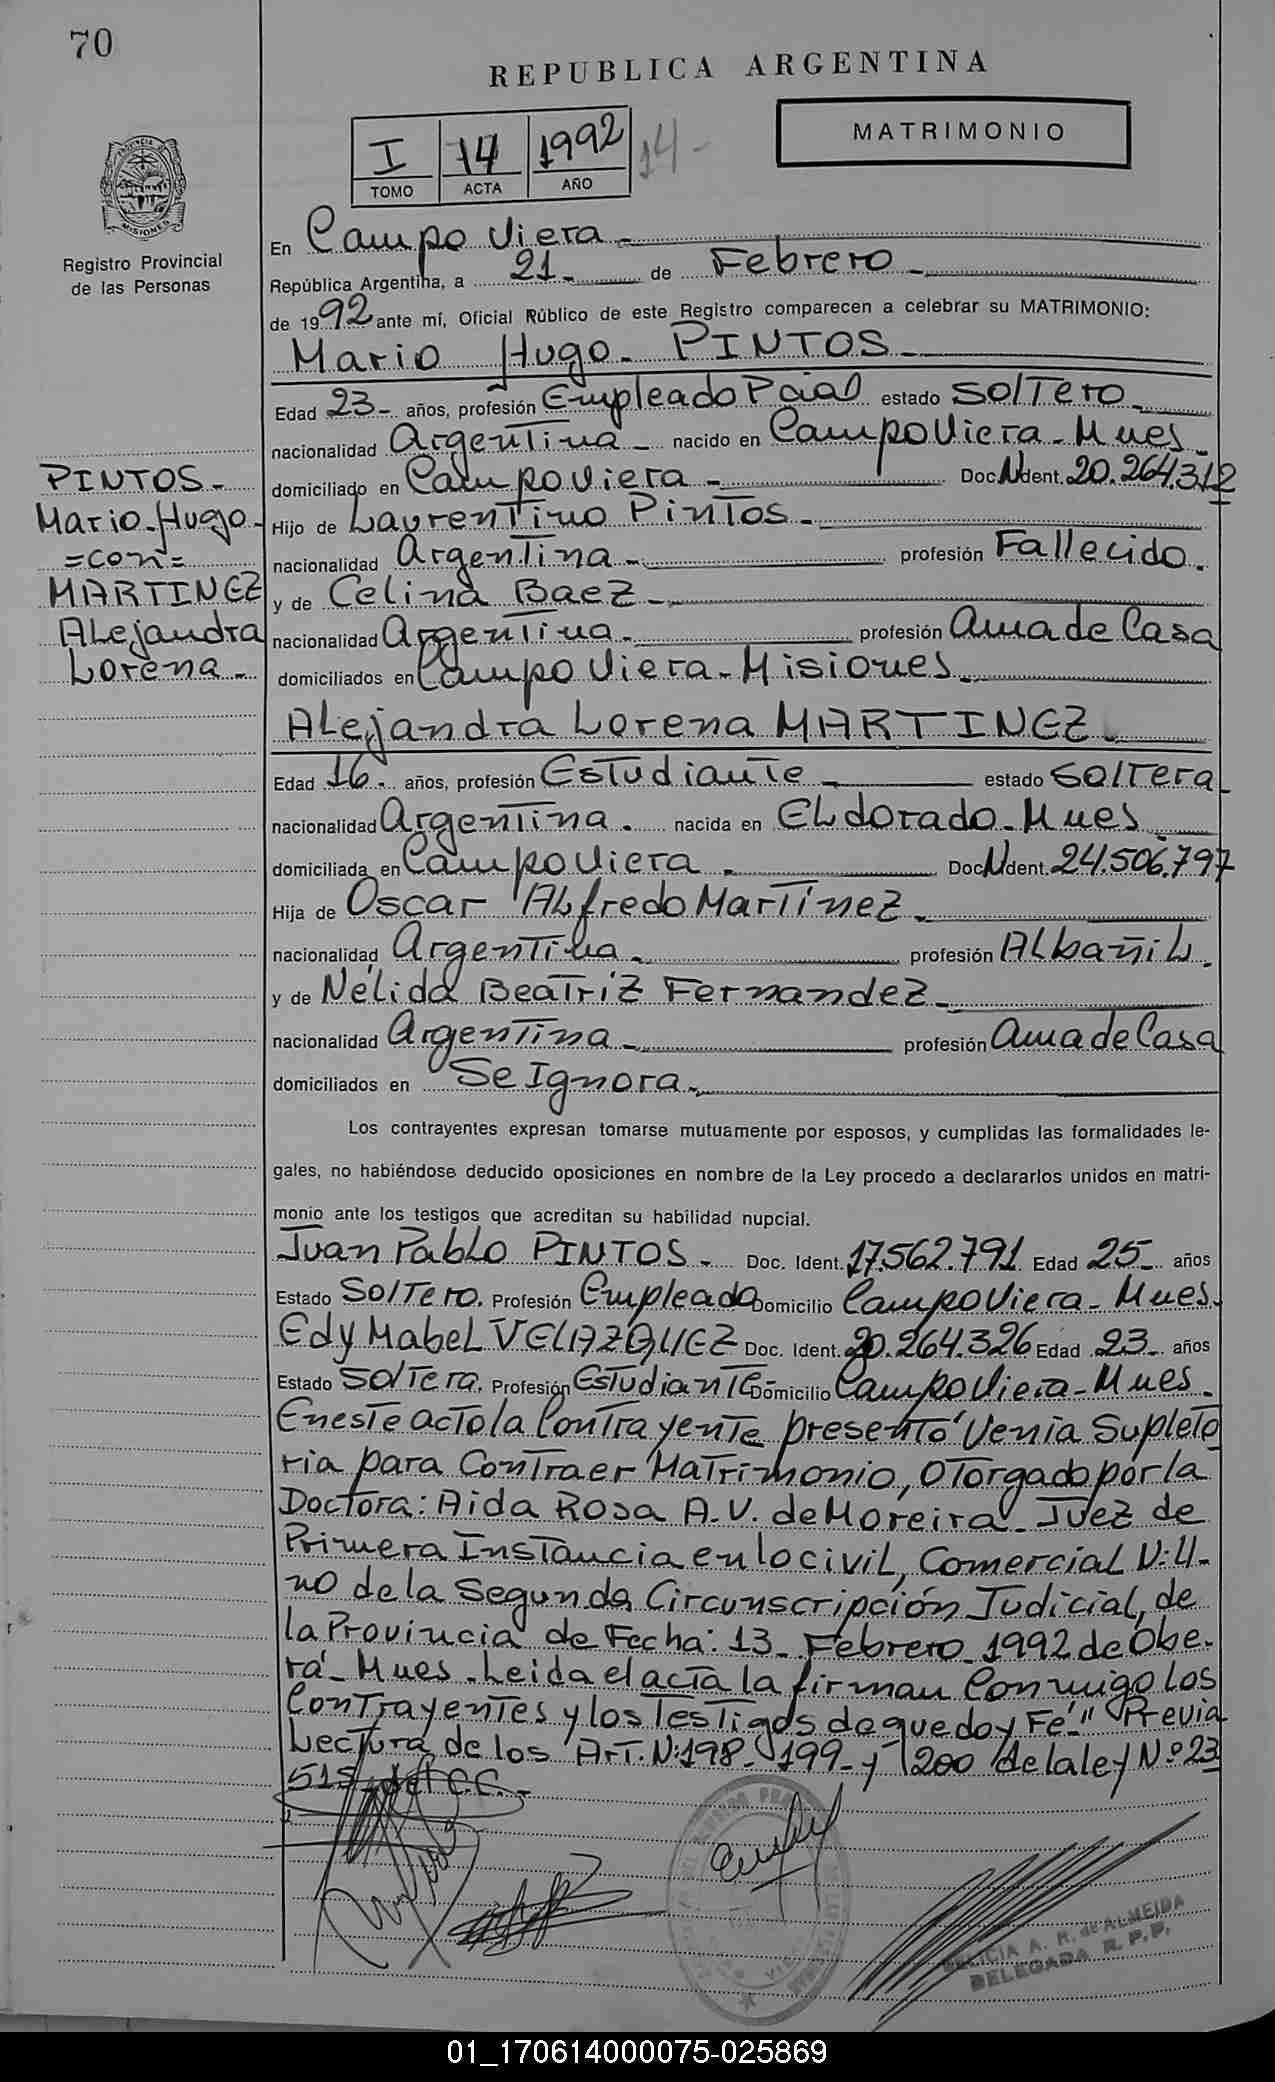 70
REPUBLICA ARGENTINA
MATRIMONIO
I 14 1992 14-
TOMO ACTA AÑO
PROVINCIA DE MISIONES
Registro Provincial
de las Personas
En Campo Viera-
República Argentina, a 21- de Febrero-
de 1992 ante mí, Oficial Público de este Registro comparecen a celebrar su MATRIMONIO:
Mario Hugo- PINTOS-
Edad 23- años, profesión Empleado Pcial estado SOlTero-
nacionalidad ArgenTina- nacido en Campo Viera- Mnes-
domiciliado en Campo Viera- Doc. N Ident. 20.264.312
Hijo de LaurenTino PinTos-
nacionalidad ArgenTina- profesión Fallecido.
y de Celina Baez-
nacionalidad ArgenTina- profesión Ama de Casa
domiciliados en Campo Viera- Misiones-
PINTOS-
Mario-Hugo-
=con=
MARTINEZ
ALejandra
Lorena-
ALejandra Lorena MARTINEZ-
Edad 16- años, profesión EsTudianTe- estado SOlTera-
nacionalidad ArgenTina. nacida en ELdorado- Mnes
domiciliada en Campo Viera- Doc. N Ident. 24.506.797
Hija de Oscar ALfredo MarTínez-
nacionalidad ArgenTina- profesión ALbañiL.
y de Nélida BeaTriz Fernandez-
nacionalidad ArgenTina- profesión Ama de Casa
domiciliados en Se Ignora-
Los contrayentes expresan tomarse mutuamente por esposos, y cumplidas las formalidades le-
gales, no habiéndose deducido oposiciones en nombre de la Ley procedo a declararlos unidos en matri-
monio ante los testigos que acreditan su habilidad nupcial.
Juan PabLo PINTOS- Doc. Ident. 17.562.791 Edad 25- años
Estado SOlTero. Profesión Empleado Domicilio Campo Viera- Mnes-
Edy MabeL VELAZQUEZ Doc. Ident. 20.264.326 Edad 23- años
Estado SOlTera. Profesión EsTudianTe- Domicilio Campo Viera- Mnes.
En esTe acTo la ConTrayenTe presenTó Venia SupleTo
ria para ConTraer MaTrimonio, OTorgado por la
DocTora: Aida Rosa A.V. de Moreira- Juez de
Primera InsTancia en lo civiL, ComerciaL N: U-
no de la Segunda Circunscripción Judicial, de
la Provincia de Fecha: 13- Febrero- 1992 de Obe-
rá- Mnes. Leida el acTa la firman Conmigo los
ConTrayenTes y los TesTigos de que doy Fé-" Previa
LecTura de los ArT. N: 198- 199- y 200 de la ley Nº 23
515 del C.C.-
FELICIA A. R. de ALMEIDA
DELEGADA R. P. P.
01_170614000075-025869